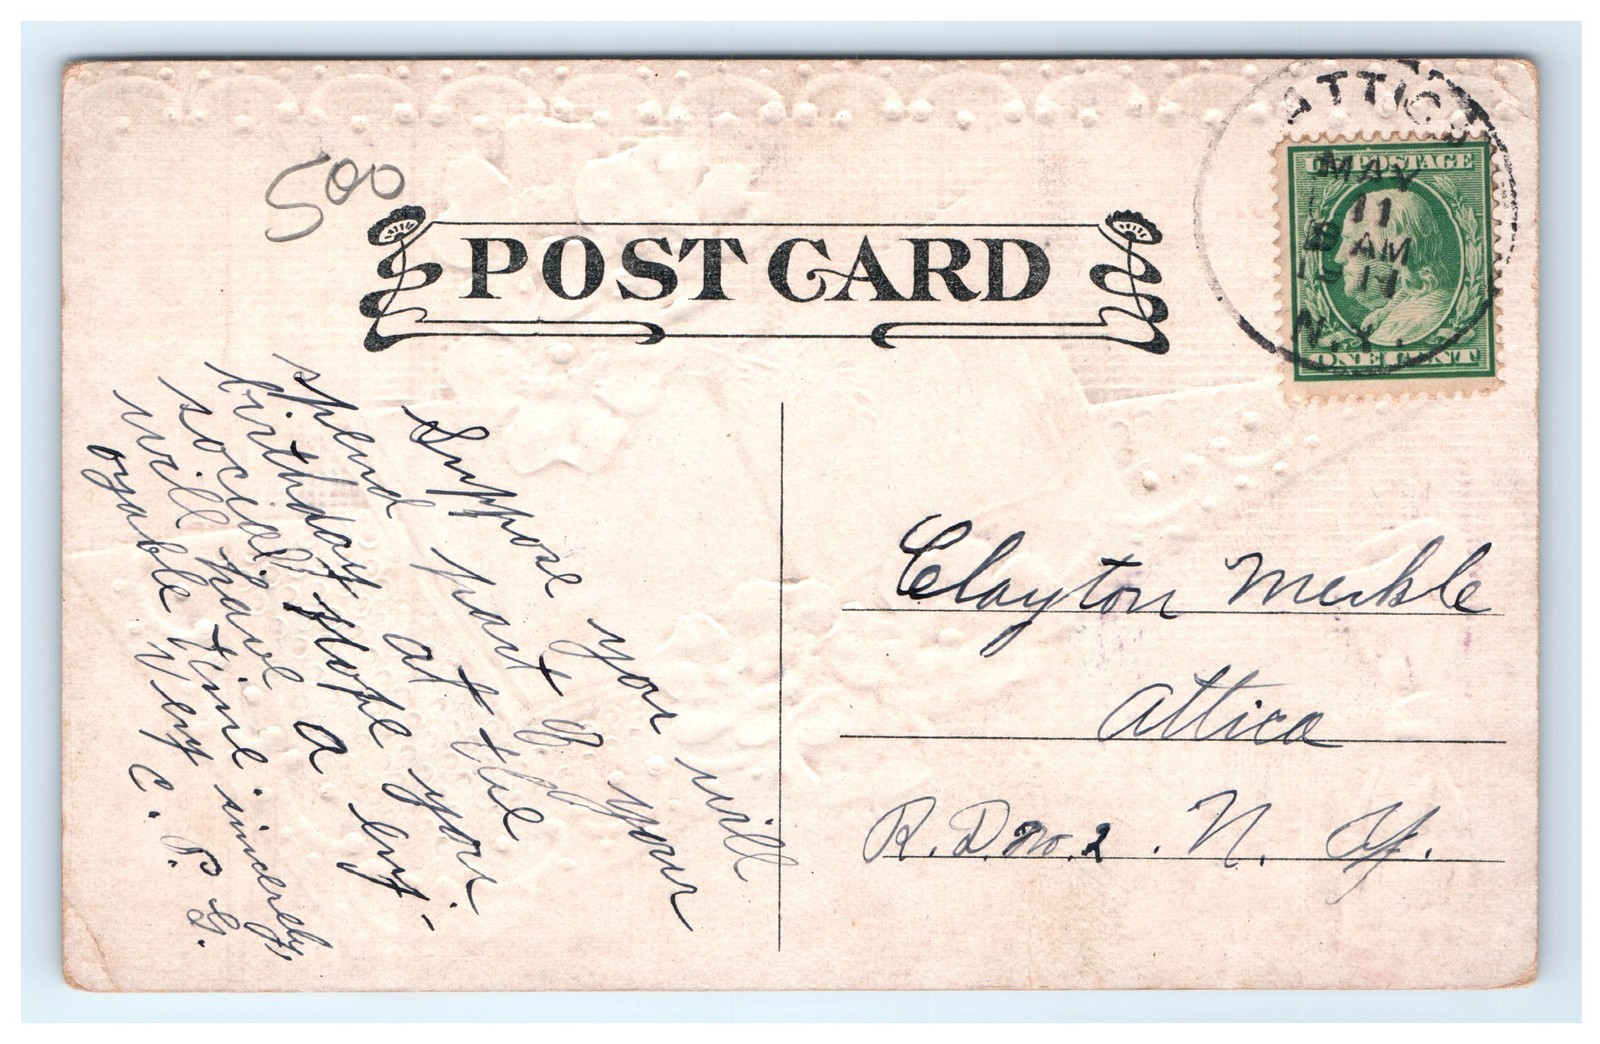 500
POST CARD
ATTICA
MAY
11
8 AM
1911
N.Y.
U.S. POSTAGE
ONE CENT
Suppose you will
spend part of your
birthday at the
social. Hope you
will have a enj-
oyable time.
Very sincerely,
C. P. G.
Clayton Merkle
Attica
R. D. No. 2. N. Y.